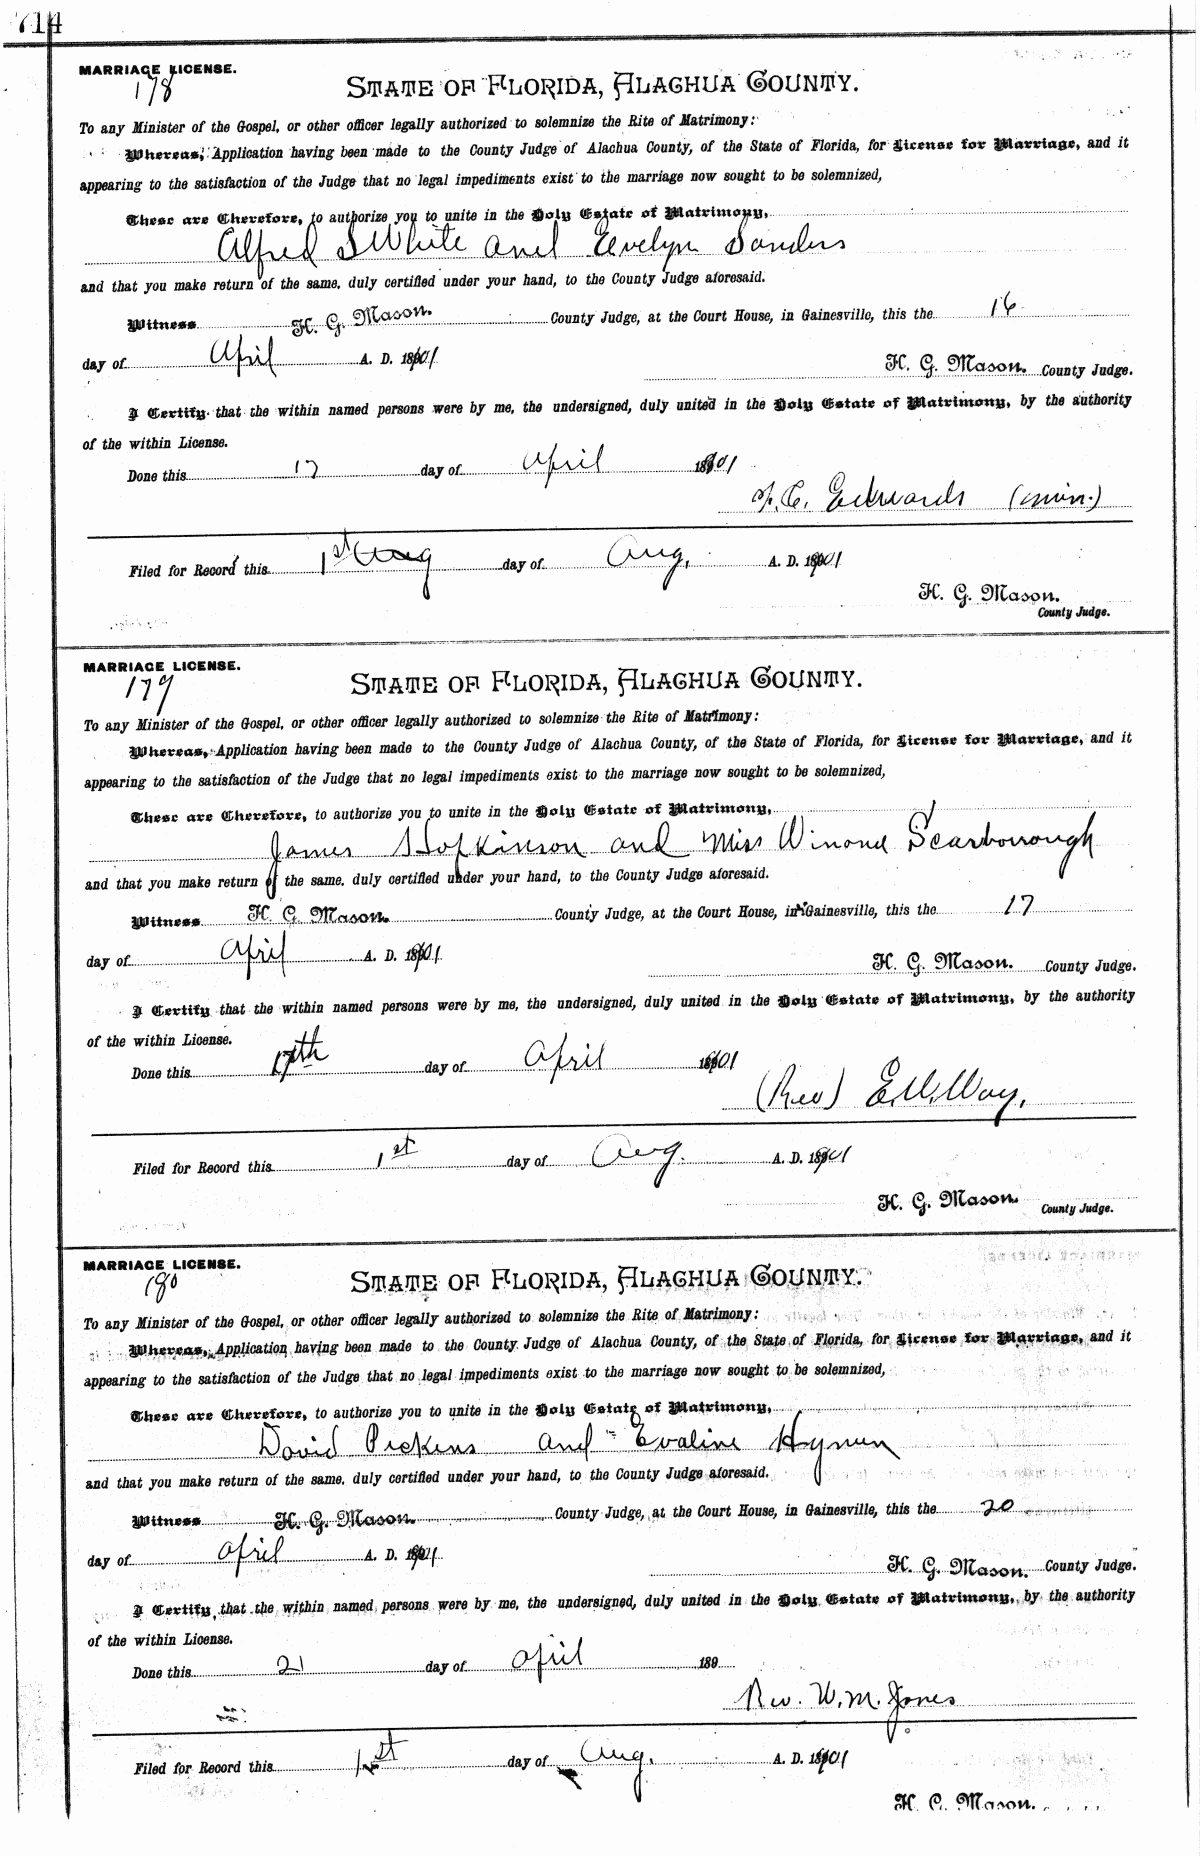 714
MARRIAGE LICENSE.
178
STATE OF FLORIDA, ALACHUA COUNTY.
To any Minister of the Gospel, or other officer legally authorized to solemnize the Rite of Matrimony:
Whereas, Application having been made to the County Judge of Alachua County, of the State of Florida, for License for Marriage, and it
appearing to the satisfaction of the Judge that no legal impediments exist to the marriage now sought to be solemnized,
These are Therefore, to authorize you to unite in the Holy Estate of Matrimony,
Alfred S White and Evelyn Sanders
and that you make return of the same, duly certified under your hand, to the County Judge aforesaid.
Witness H. G. Mason. County Judge, at the Court House, in Gainesville, this the 16
day of April A. D. 1901
H. G. Mason. County Judge.
I Certify that the within named persons were by me, the undersigned, duly united in the Holy Estate of Matrimony, by the authority
of the within License.
Done this 17 day of April 1901
C. Edwards (min.)
Filed for Record this 1st Aug day of Aug. A. D. 1901
H. G. Mason.
County Judge.
MARRIAGE LICENSE.
179
STATE OF FLORIDA, ALACHUA COUNTY.
To any Minister of the Gospel, or other officer legally authorized to solemnize the Rite of Matrimony:
Whereas, Application having been made to the County Judge of Alachua County, of the State of Florida, for License for Marriage, and it
appearing to the satisfaction of the Judge that no legal impediments exist to the marriage now sought to be solemnized,
These are Therefore, to authorize you to unite in the Holy Estate of Matrimony,
James Hopkinson and Miss Winona Scarborough
and that you make return of the same, duly certified under your hand, to the County Judge aforesaid.
Witness H. G. Mason. County Judge, at the Court House, in Gainesville, this the 17
day of April A. D. 1901
H. G. Mason. County Judge.
I Certify that the within named persons were by me, the undersigned, duly united in the Holy Estate of Matrimony, by the authority
of the within License.
Done this 17th day of April 1901
(Rev) E. W. Way.
Filed for Record this 1st day of Aug. A. D. 1901
H. G. Mason. County Judge.
MARRIAGE LICENSE.
180
STATE OF FLORIDA, ALACHUA COUNTY.
To any Minister of the Gospel, or other officer legally authorized to solemnize the Rite of Matrimony:
Whereas, Application having been made to the County Judge of Alachua County, of the State of Florida, for License for Marriage, and it
appearing to the satisfaction of the Judge that no legal impediments exist to the marriage now sought to be solemnized,
These are Therefore, to authorize you to unite in the Holy Estate of Matrimony,
David Pickens and Evaline Hymen
and that you make return of the same, duly certified under your hand, to the County Judge aforesaid.
Witness H. G. Mason. County Judge, at the Court House, in Gainesville, this the 20
day of April A. D. 1901
H. G. Mason. County Judge.
I Certify that the within named persons were by me, the undersigned, duly united in the Holy Estate of Matrimony, by the authority
of the within License.
Done this 21 day of April 189
Rev. W. M. Jones
Filed for Record this 1st day of Aug. A. D. 1901
H. G. Mason.